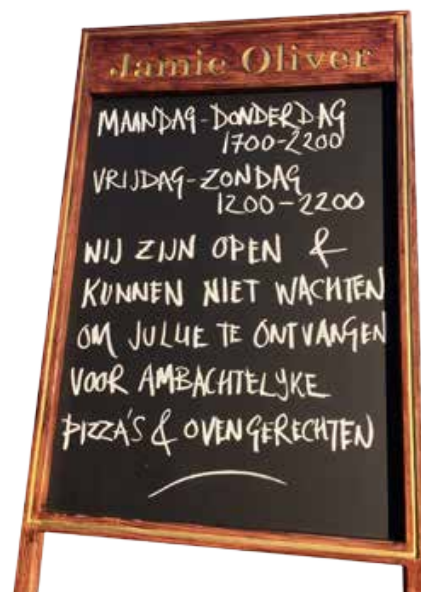 Jamie Oliver
MAANDAG-DONDERDAG
1700-2200
VRIJDAG-ZONDAG
1200-2200
WIJ ZIJN OPEN &
KUNNEN NIET WACHTEN
OM JULLIE TE ONTVANGEN
VOOR AMBACHTELYKE
PIZZA'S & OVENGERECHTEN